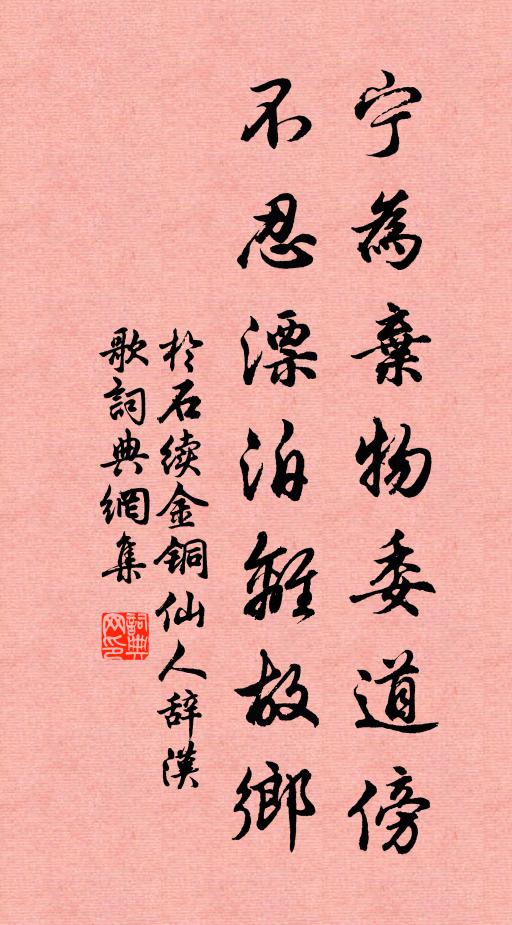 宁為棄物委道傍
不忍漂泊離故鄉
於石续金铜仙人辞漢
歌詞典網集
詞典
网印